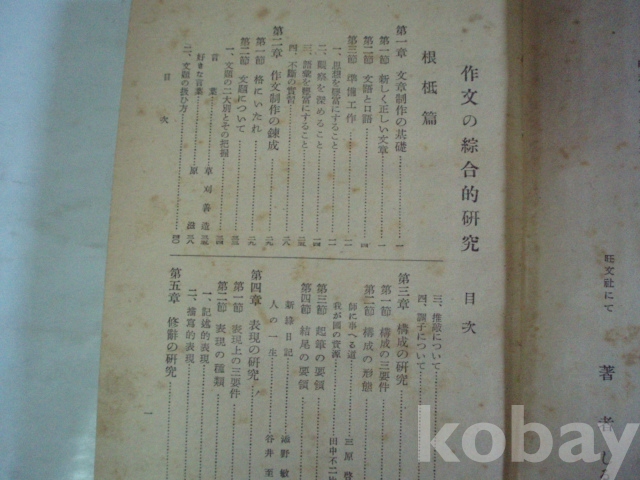 旺文社にて
著者しる
作文の綜合的研究 目次
根柢篇
第一章 文章制作の基礎……一
第一節 新しく正しい文章……一
第二節 文語と口語……四
第三節 準備工作……二
一、思想を豐富にすること……二
二、觀察を深めること……一四
三、語彙を豐富にすること……一八
四、不斷の實習……一八
第二章 作文制作の錬成……一九
第一節 格にいたれ……一九
第二節 文題について
一、文題の二大別とその把握
言葉……草刈善造
好きな言葉……原
二、文題の扱ひ方
目次
三、推敲について
四、調子について
第三章 構成の研究
第一節 構成の三要件
第二節 構成の形態
師に事へる道……三原啓
我が國の資源……田中不二
第三節 起筆の要領
第四節 結尾の要領
新緑日記……瀬野敏
人の一生……谷井至
第四章 表現の研究
第一節 表現上の三要件
第二節 表現の種類
一、記述的表現
二、描寫的表現
第五章 修辭の研究
一
kobay